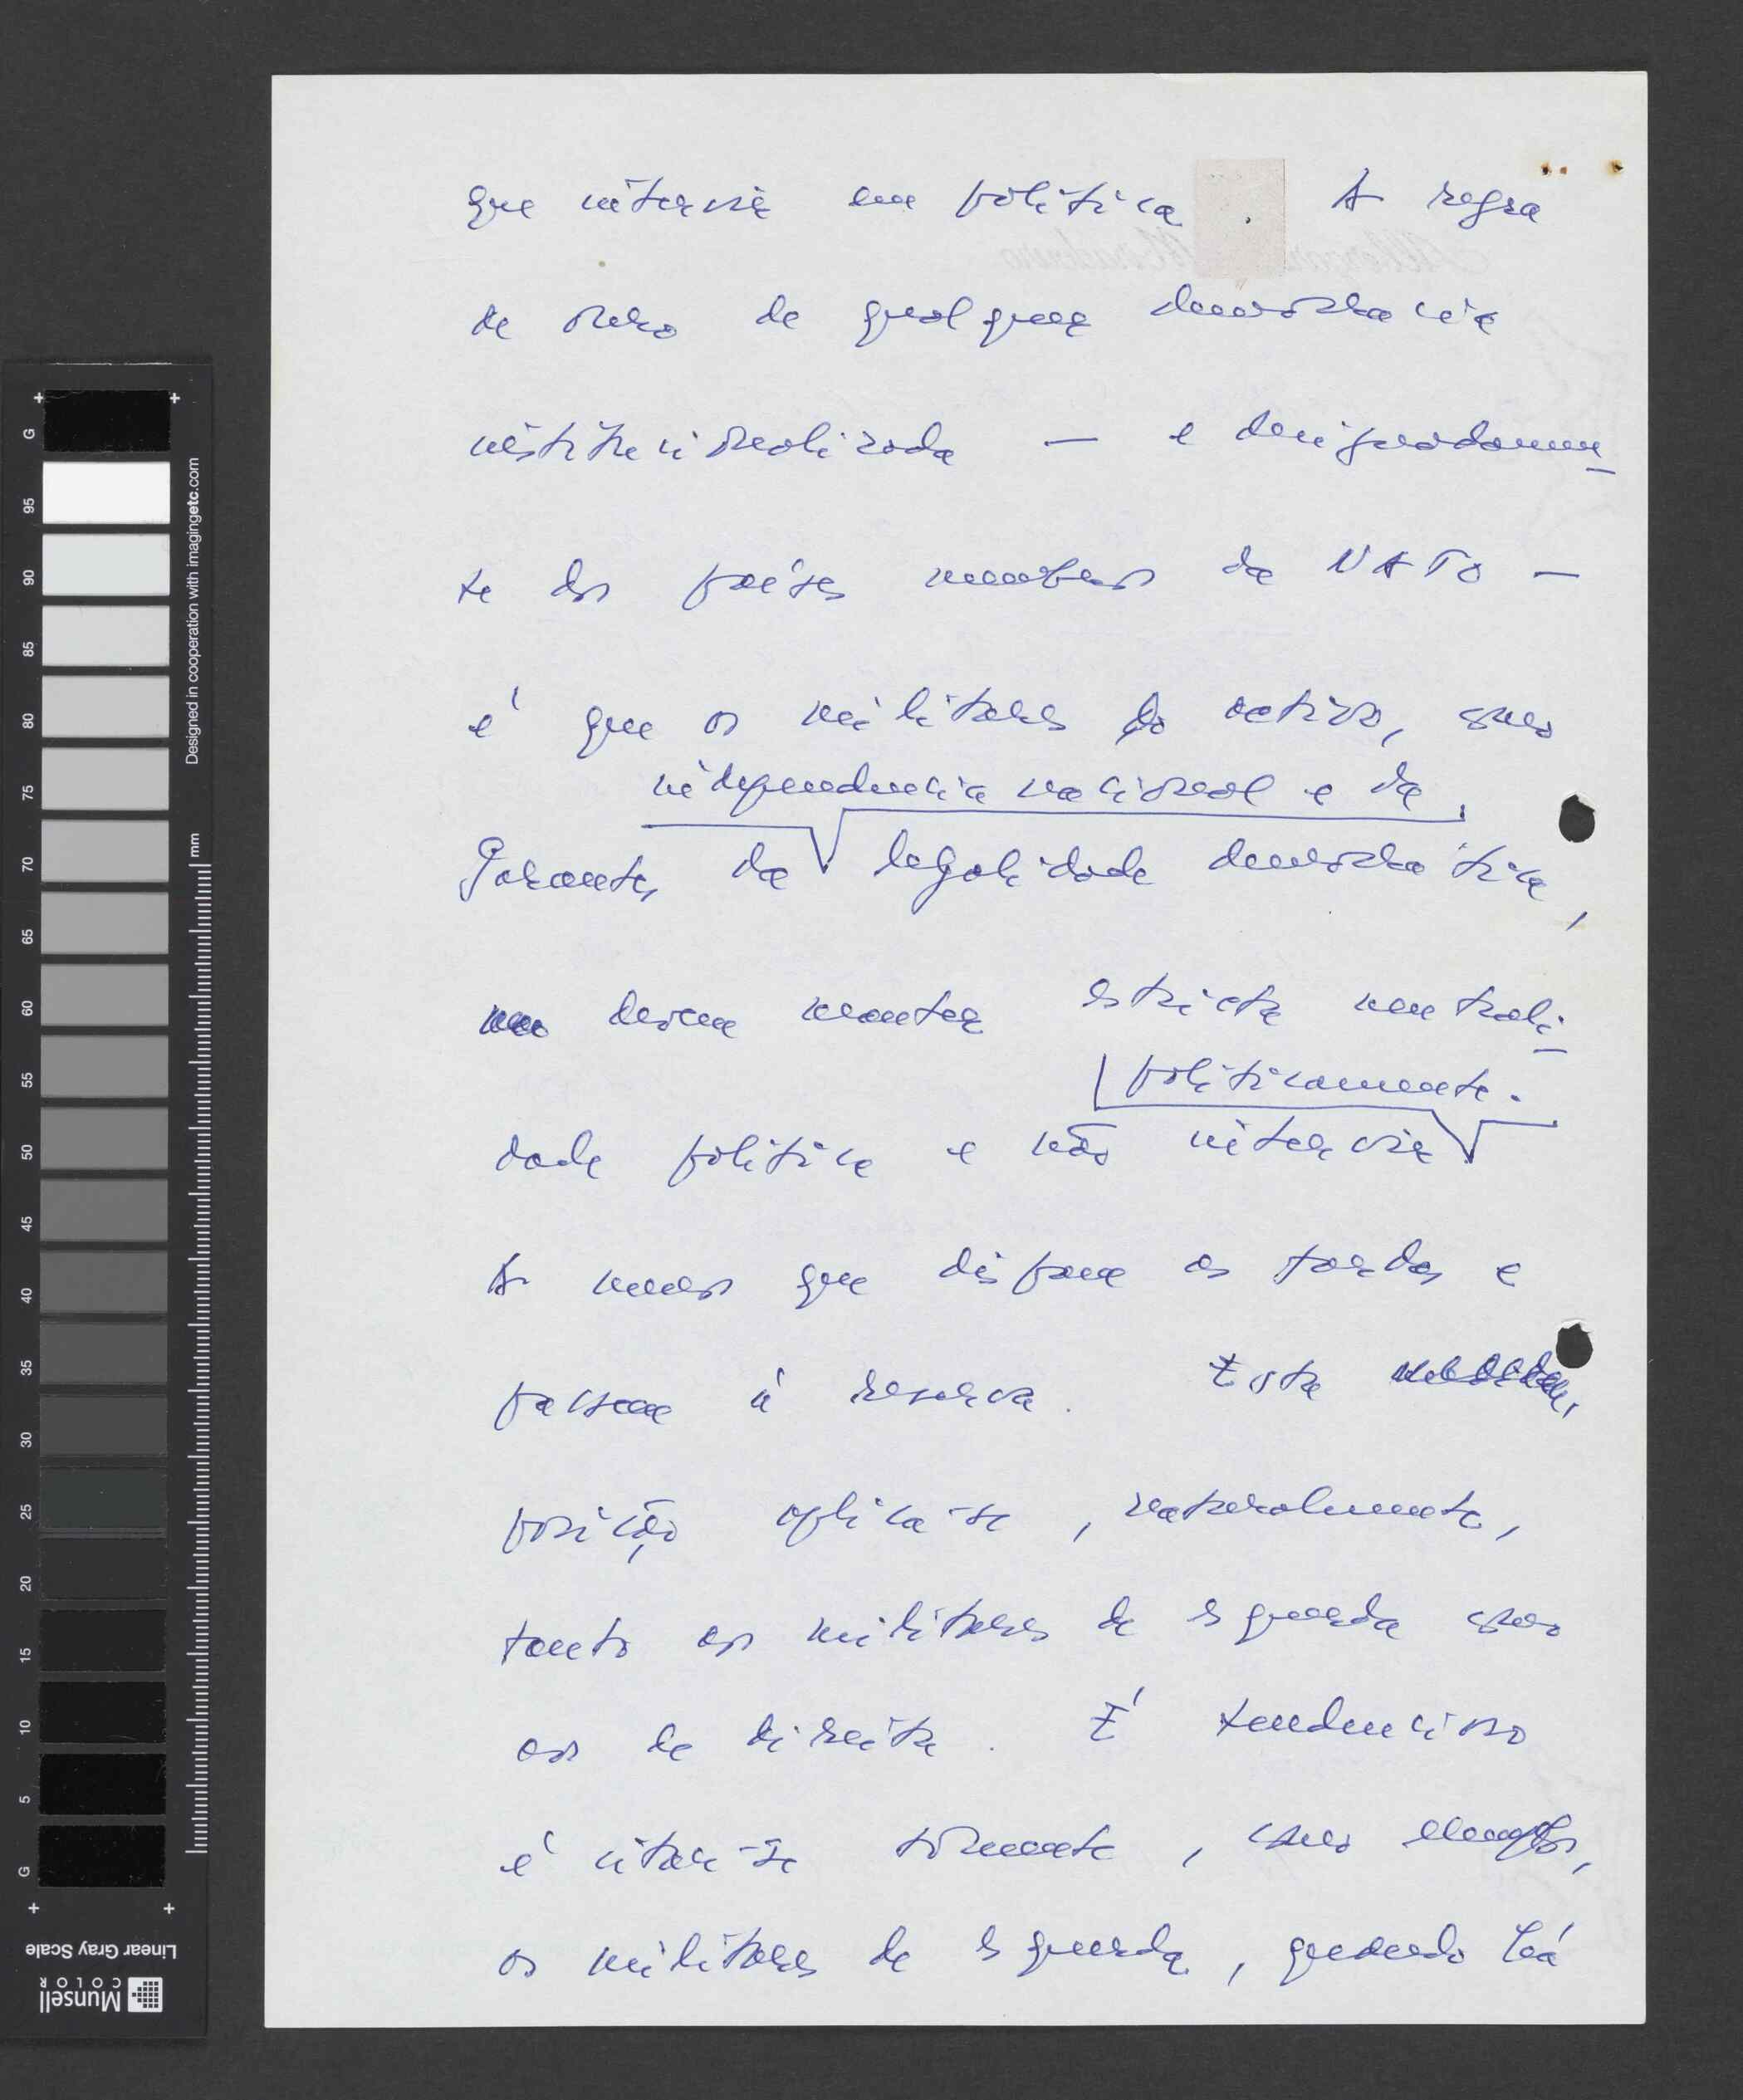 que intervir em política. A regra
de ouro de qualquer democracia
institucionalizada — e designadamen-
te dos países membros da NATO —
é que os militares do activo, como
independência nacional e da
garantes da legalidade democrática,
devem manter estricta neutrali-
politicamente.
dade política e não intervir
A menos que dispam as fardas e
passem à reserva. Esta
posição aplica-se, naturalmente,
tanto aos militares de esquerda como
aos de direita. É tendencioso
é citar-se somente, como exemplos,
os militares de esquerda, quando há
G
95
90
85
80
75
70
65
60
55
50
45
40
35
30
25
20
15
10
5
G
mm
Designed in cooperation with imagingetc.com
Linear Gray Scale
Munsell
COLOR